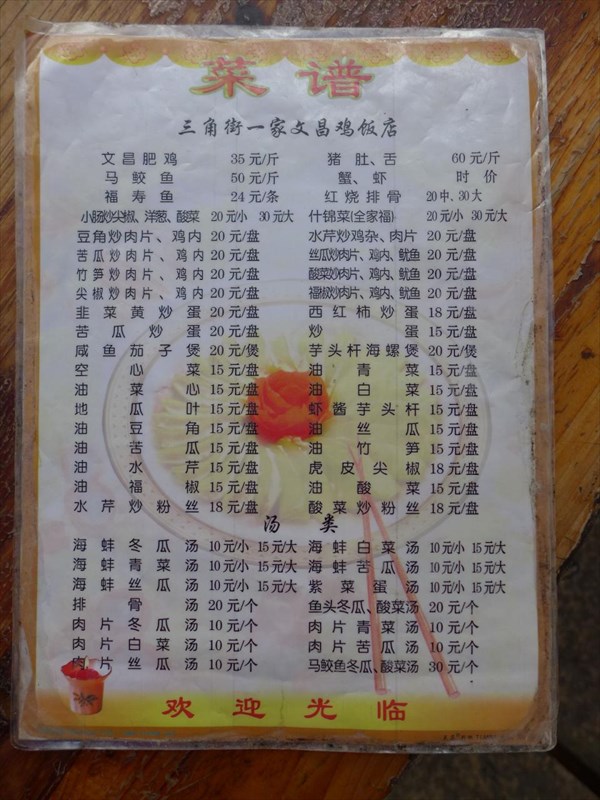 菜谱
三角街一家文昌鸡饭店
文昌肥鸡 35元/斤 猪肚、舌 60元/斤
马鲛鱼 50元/斤 蟹、虾 时价
福寿鱼 24元/条 红烧排骨 20中、30大
小肠炒尖椒、洋葱、酸菜 20元/小 30元大 什锦菜(全家福) 20元/小 30元大
豆角炒肉片、鸡内 20元/盘 水芹炒鸡杂、肉片 20元/盘
苦瓜炒肉片、鸡内 20元/盘 丝瓜炒肉片、鸡内、鱿鱼 20元/盘
竹笋炒肉片、鸡内 20元/盘 酸菜炒肉片、鸡内、鱿鱼 20元/盘
尖椒炒肉片、鸡内 20元/盘 福椒炒肉片、鸡内、鱿鱼 20元/盘
韭菜黄炒蛋 20元/盘 西红柿炒蛋 18元/盘
苦瓜炒蛋 20元/盘 炒蛋 15元/盘
咸鱼茄子煲 20元/煲 芋头杆海螺煲 20元/煲
空心菜 15元/盘 油青菜 15元/盘
油菜心 15元/盘 油白菜 15元/盘
地瓜叶 15元/盘 虾酱芋头杆 15元/盘
油豆角 15元/盘 油丝瓜 15元/盘
油苦瓜 15元/盘 油竹笋 15元/盘
油水芹 15元/盘 虎皮尖椒 18元/盘
油福椒 15元/盘 油酸菜 15元/盘
水芹炒粉丝 18元/盘 酸菜炒粉丝 18元/盘
汤类
海蚌冬瓜汤 10元/小 15元/大 海蚌白菜汤 10元/小 15元/大
海蚌青菜汤 10元/小 15元/大 海蚌苦瓜汤 10元/小 15元/大
海蚌丝瓜汤 10元/小 15元/大 紫菜蛋汤 10元/小 15元/大
排骨汤 20元/个 鱼头冬瓜、酸菜汤 20元/个
肉片冬瓜汤 10元/个 肉片青菜汤 10元/个
肉片白菜汤 10元/个 肉片苦瓜汤 10元/个
肉片丝瓜汤 10元/个 马鲛鱼冬瓜、酸菜汤 30元/个
欢迎光临